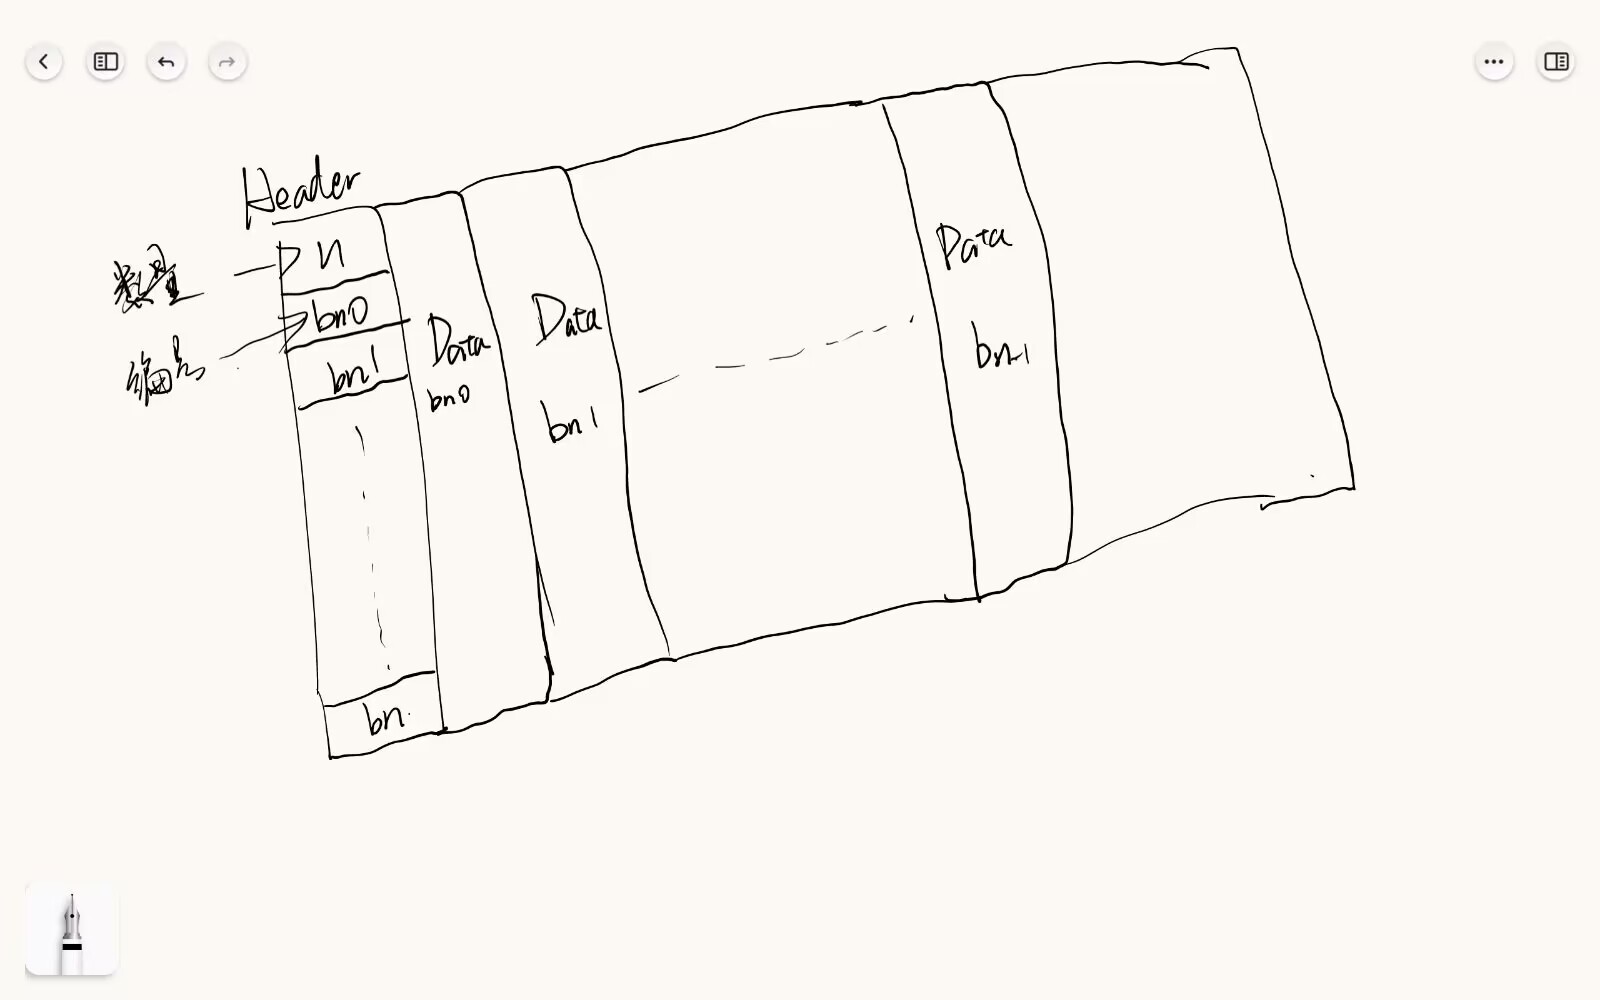 Header
数量
n
编号
bn0
bn1
bn
Data
bn0
Data
bn1
Data
bn-1